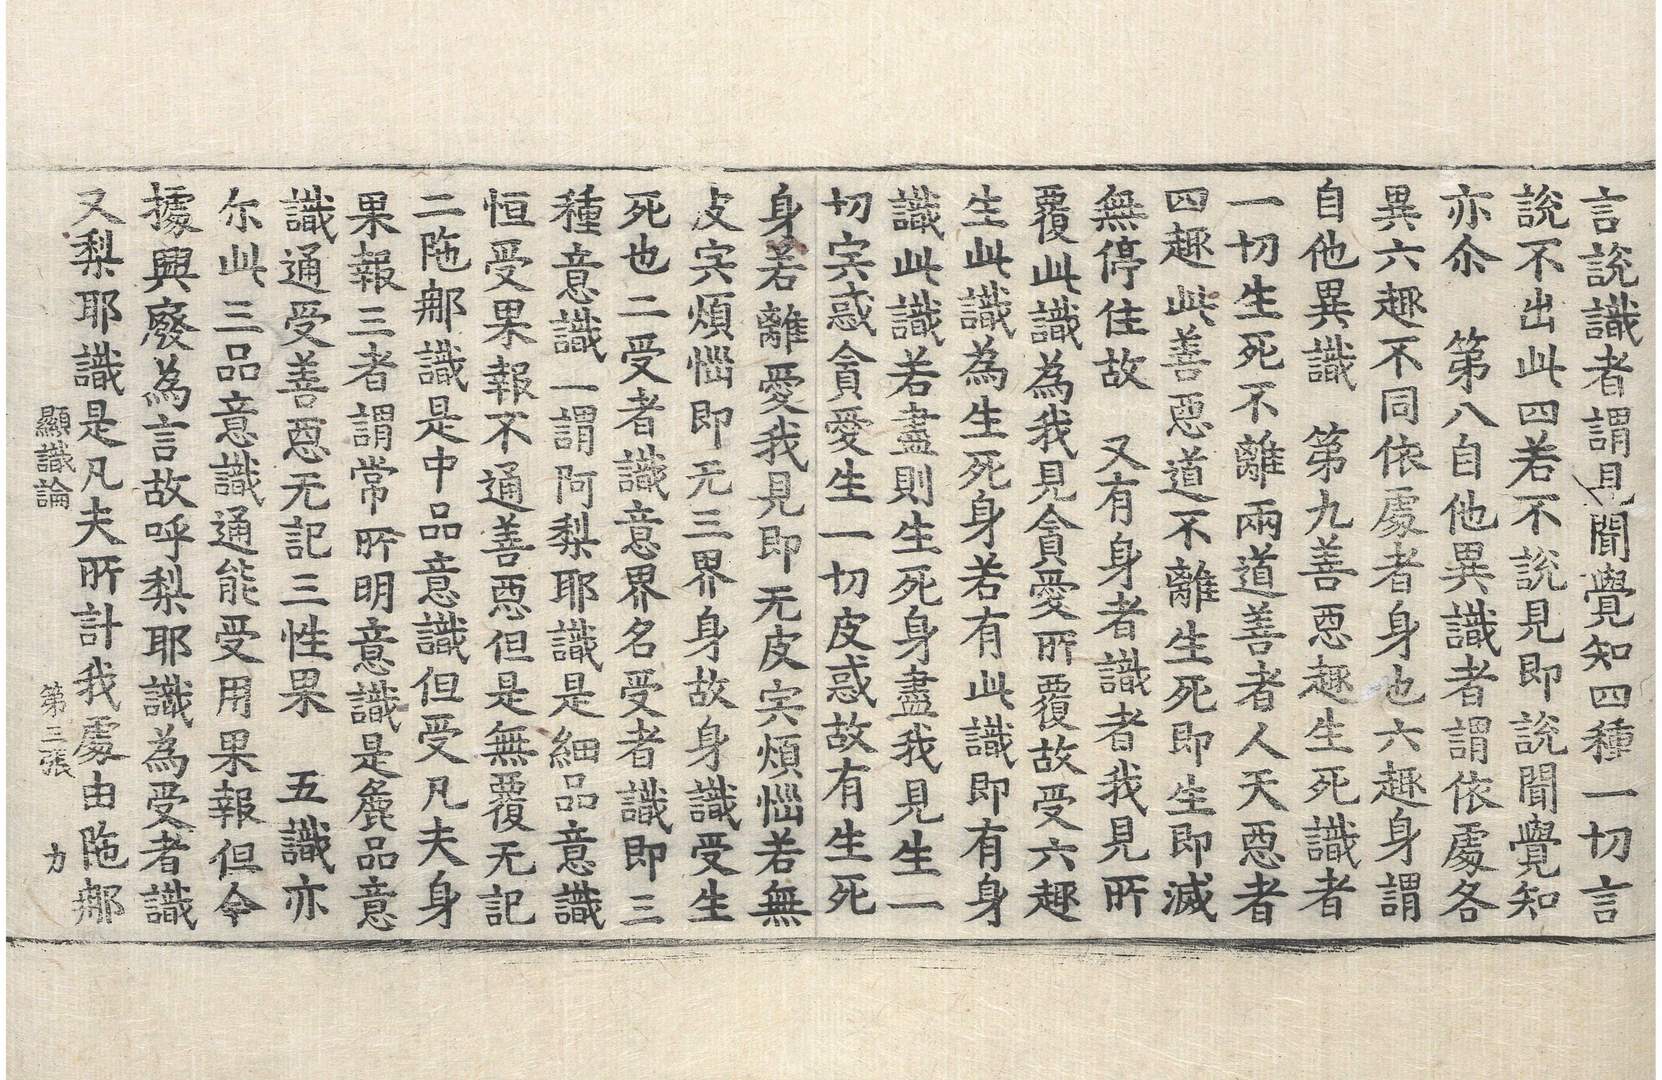 言說識者謂見聞覺知四種一切言
說不出此四若不說見即說聞覺知
亦尒　第八自他異識者謂依處各
異六趣不同依處者身也六趣身謂
自他異識　第九善惡趣生死識者
一切生死不離兩道善者人天惡者
四趣此善惡道不離生死即生即滅
無停住故　又有身者識者我見所
覆此識為我見貪愛所覆故受六趣
生此識為生死身若有此識即有身
識此識若盡則生死身盡我見生一
切宍惑貪愛生一切皮惑故有生死
身若離愛我見即无皮宍煩惱若無
皮宍煩惱即无三界身故身識受生
死也二受者識意界名受者識即三
種意識一謂阿梨耶識是細品意識
恒受果報不通善惡但是無覆无記
二陁郍識是中品意識但受凡夫身
果報三者謂常所明意識是麁品意
識通受善惡无記三性果　五識亦
尒此三品意識通能受用果報但今
據興廢為言故呼梨耶識為受者識
又梨耶識是凡夫所計我處由陁郍
顯識論　第三張　力